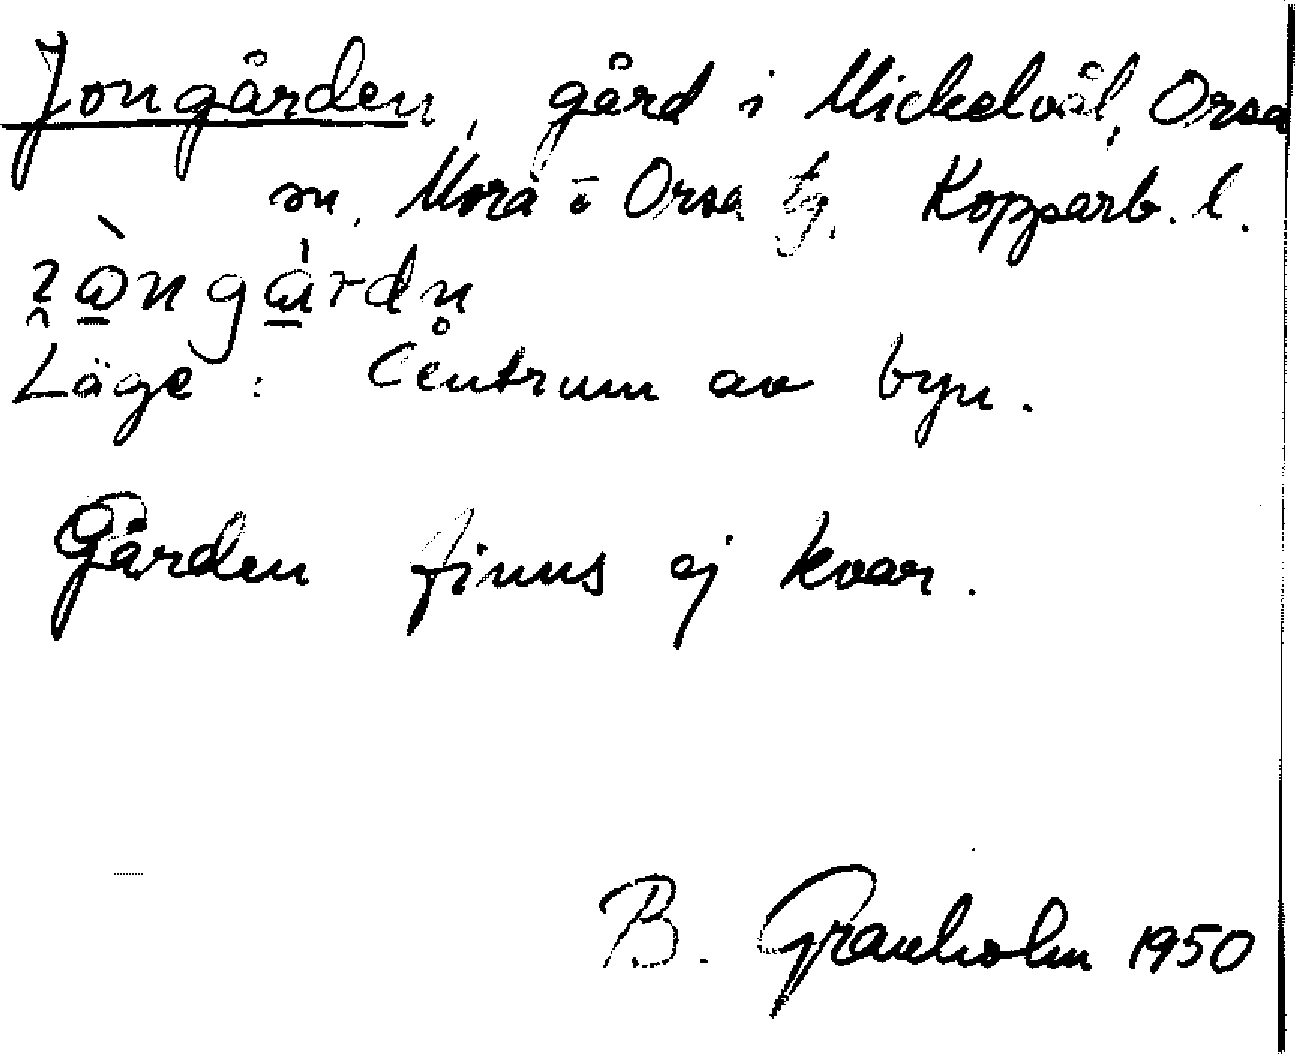 Jongården, gård i Mickelvål, Orsa
sn. Mora o Orsa tg. Kopparb. l.
Läge: Centrum av byn.
Gården finns ej kvar.
B. Granholm 1950